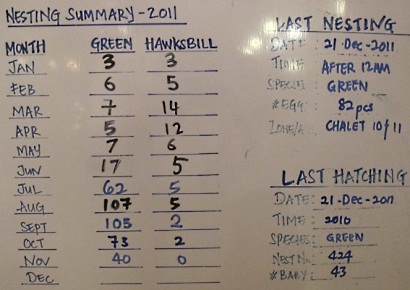 NESTING SUMMARY-2011
MONTH GREEN HAWKSBILL
JAN 3 3
FEB 6 5
MAR 7 14
APR 5 12
MAY 7 6
JUN 17 5
JUL 62 5
AUG 107 5
SEPT 105 2
OCT 73 2
NOV 40 0
DEC
LAST NESTING
DATE: 21-Dec-2011
TIME: AFTER 12AM
SPECIES: GREEN
#EGG: 82pcs
CHALET 10/11
LAST HATCHING
DATE: 21-Dec-2011
TIME: 2010
SPECIES: GREEN
NEST No: 424
#BABY: 43